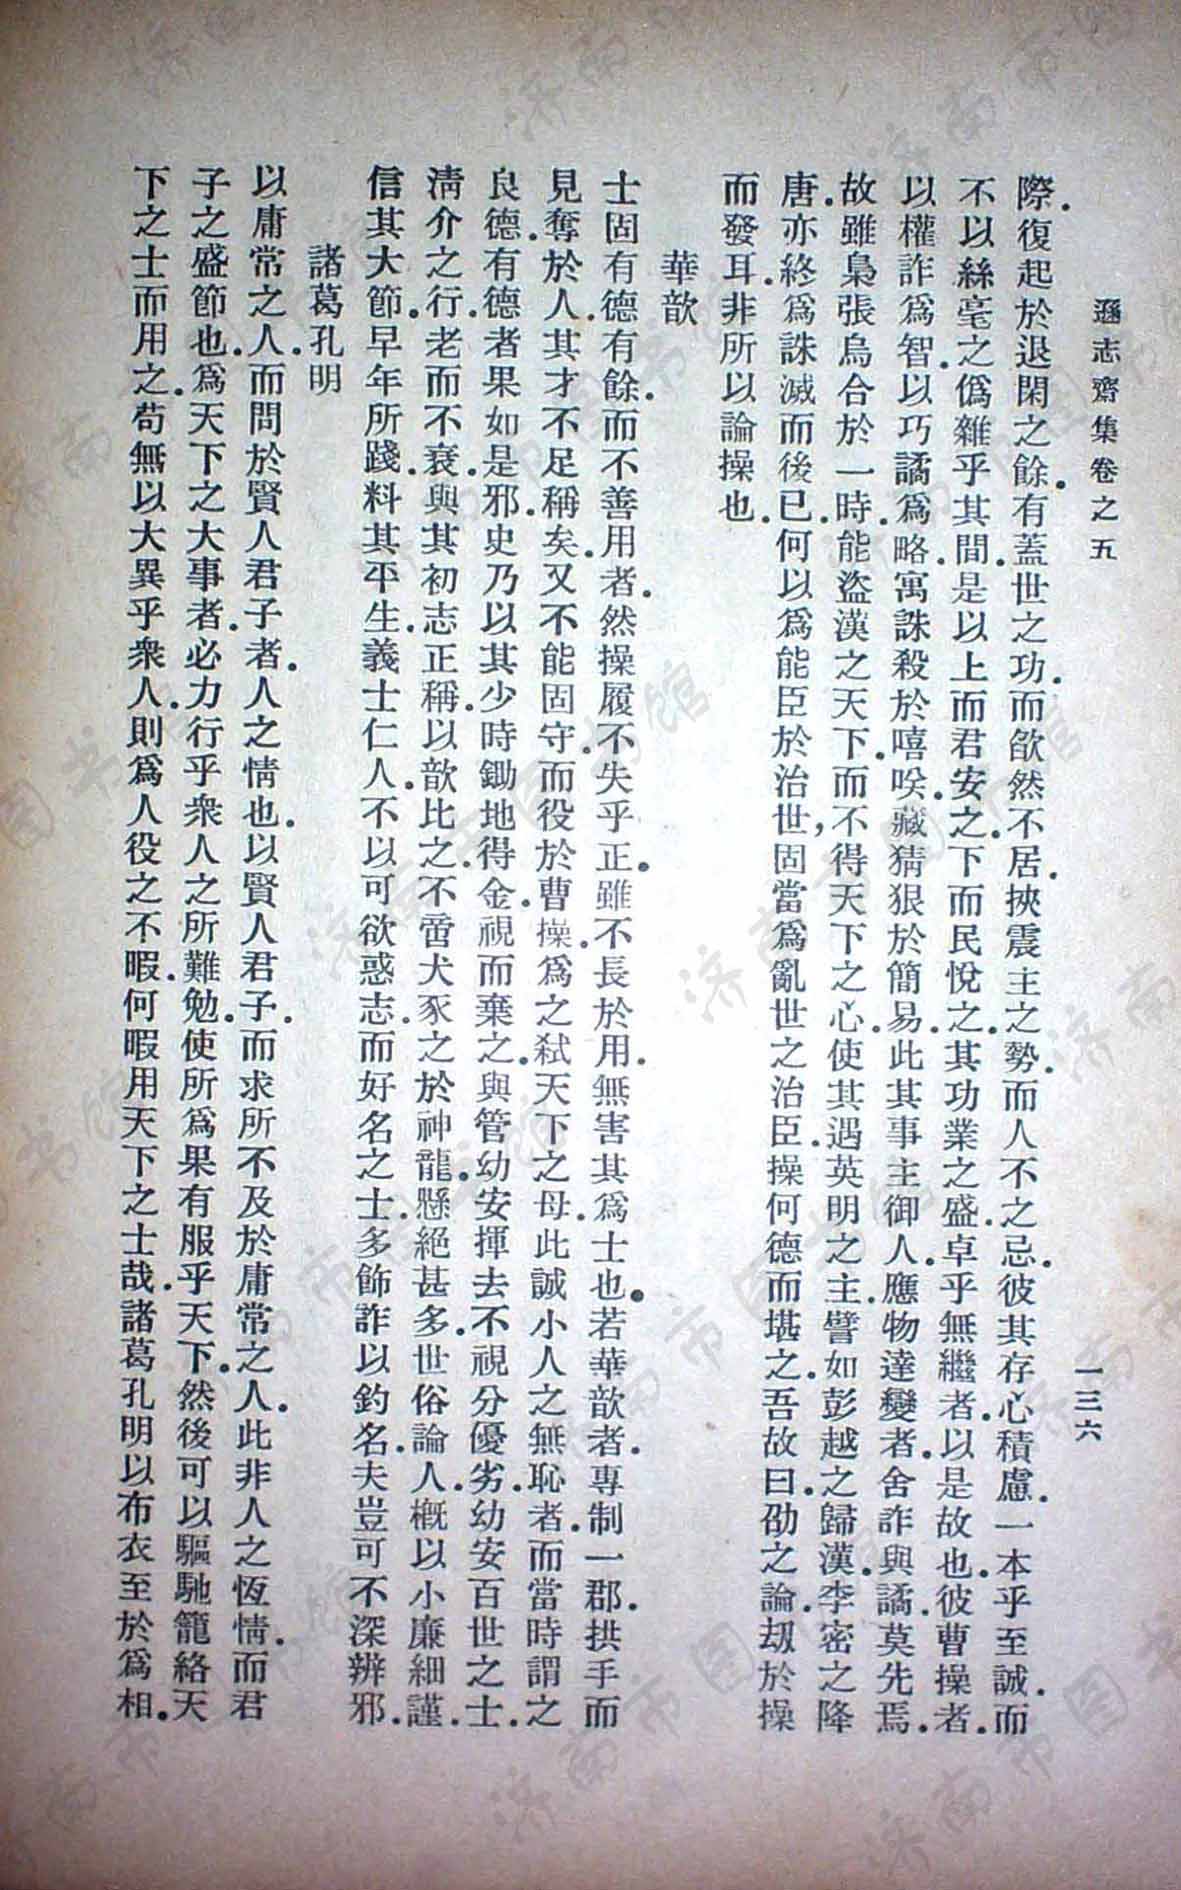 遜志齋集卷之五
一三六
際．復起於退閑之餘．有蓋世之功．而欿然不居．挾震主之勢．而人不之忌．彼其存心積慮．一本乎至誠．而
不以絲毫之僞雜乎其間．是以上而君安之．下而民悅之．其功業之盛．卓乎無繼者．以是故也．彼曹操者．
以權詐爲智．以巧譎爲略．寓誅殺於嘻唉．藏猜狠於簡易．此其事主御人．應物達變者．舍詐與譎．莫先焉．
故雖梟張烏合於一時．能盜漢之天下．而不得天下之心．使其遇英明之主．譬如彭越之歸漢．李密之降
唐．亦終爲誅滅而後已．何以爲能臣於治世，固當爲亂世之治臣．操何德而堪之．吾故曰．劭之論．刼於操
而發耳．非所以論操也．
華歆
士固有德有餘．而不善用者．然操履不失乎正．雖不長於用．無害其爲士也．若華歆者．專制一郡．拱手而
見奪於人．其才不足稱矣．又不能固守．而役於曹操．爲之弒天下之母．此誠小人之無恥者．而當時謂之
良德．有德者果如是邪．史乃以其少時鋤地得金．視而棄之．與管幼安揮去不視分優劣．幼安百世之士．
淸介之行．老而不衰．與其初志正稱．以歆比之．不啻犬豕之於神龍．懸絕甚多．世俗論人．槪以小廉細謹．
信其大節．早年所踐．料其平生．義士仁人．不以可欲惑志．而好名之士．多飾詐以釣名．夫豈可不深辨邪．
諸葛孔明
以庸常之人．而問於賢人君子者．人之情也．以賢人君子．而求所不及於庸常之人．此非人之恆情．而君
子之盛節也．爲天下之大事者．必力行乎衆人之所難勉．使所爲果有服乎天下．然後可以驅馳籠絡天
下之士而用之．苟無以大異乎衆人．則爲人役之不暇．何暇用天下之士哉．諸葛孔明以布衣至於爲相．